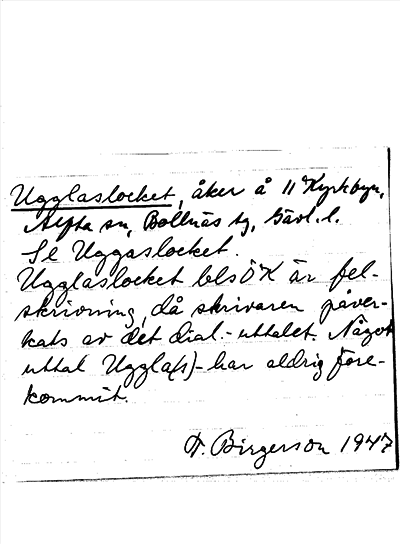 Ugglaslocket, åker å 11 Kyrkbyn,
Alfta sn, Bollnäs tg, Gävl. l.
Se Uggaslocket.
Ugglaslocket blsÖK är fel-
skrivning, då skrivaren påver-
kats av det dial.-uttalet. Något
uttal Uggla(s)- har aldrig före-
kommit.
F. Birgerson 1947